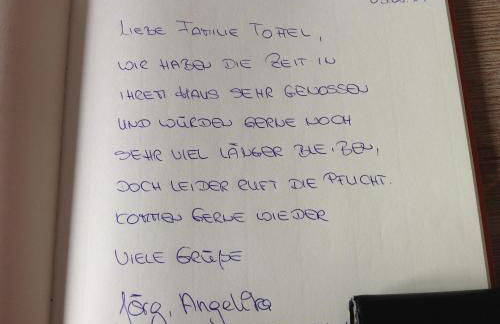 LIEBE FAMILIE TOFFEL,
WIR HABEN DIE ZEIT IN
IHREM HAUS SEHR GENOSSEN
UND WÜRDEN GERNE NOCH
SEHR VIEL LÄNGER BLEIBEN,
DOCH LEIDER RUFT DIE PFLICHT.
KOMMEN GERNE WIEDER
VIELE GRÜßE
Jörg, Angelika